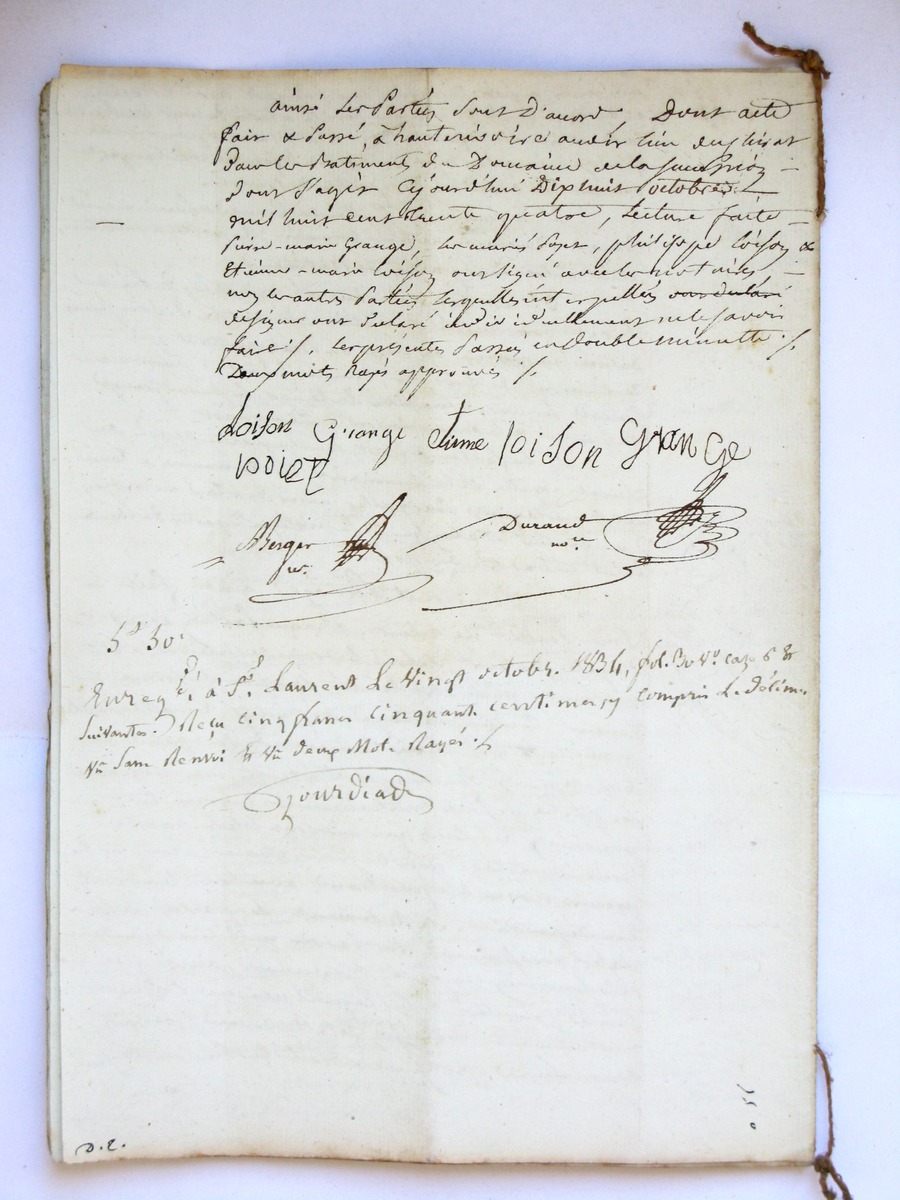 ainsi les Parties Sont D'accord, Dont acte
fait & Passé, à hauterivoire audit lieu
Dans les Batiments du Domaine de la Succession
Dont S'agit Cejourd'hui Dix huit octobre
mil huit cent trente quatre, Lecture faite
Pierre-marie Grange, les mariés , philippe Loison &
Etienne-marie Loison ont signé avec les notaires
non les autres Parties lesquelles interpellées
de signer ont Déclaré individuellement ne le savoir
faire /. Les présentes Passées en Double Minutte /.
Deux mots Rayés approuvés /.
Loison Grange etienne loison Grange
Berger Durand
nre. nore
5f 50c
Enregté. à St. Laurent Le Vingt octobre 1834, fol. 30 Vo. case 6 &
Suivantes. Reçu Cinq francs Cinquante centimes compris Le Décime
Vu Sans Renvoi & Vu deux Mots Rayés /.
D.2.